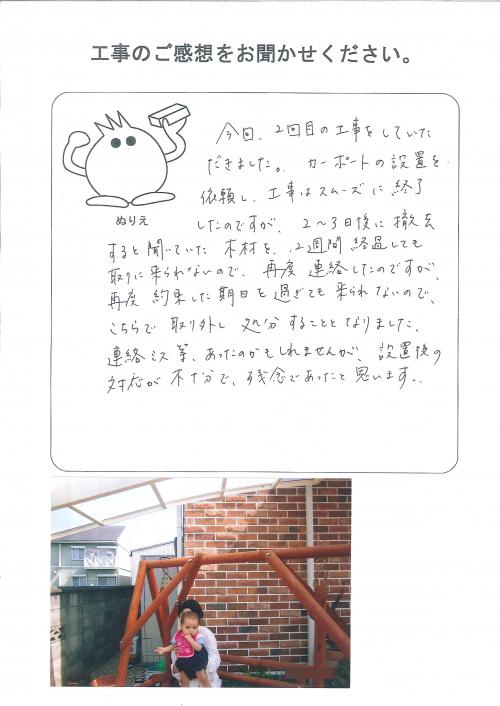 工事のご感想をお聞かせください。
今回、2回目の工事をしていた
だきました。カーポートの設置を
依頼し、工事はスムーズに終了
ぬりえ
したのですが、2〜3日後に撤去
すると聞いていた木材を、2週間経過しても
取りに来られないので、再度連絡したのですが、
再度約束した期日を過ぎても来られないので、
こちらで取り外し処分することとなりました。
連絡ミス等、あったのかもしれませんが、設置後の
対応が不十分で、残念であったと思います。